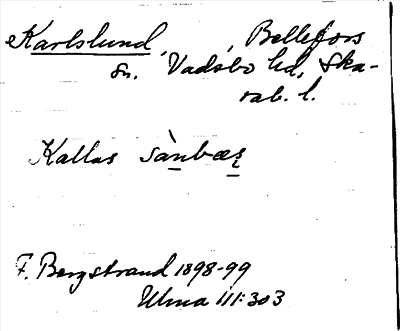 Karlslund, , Bellefors
sn. Vadsbo hd, Ska-
rab. l.
Kallas sànbæȥ
F. Bergstrand 1898-99
Ulma 111:303